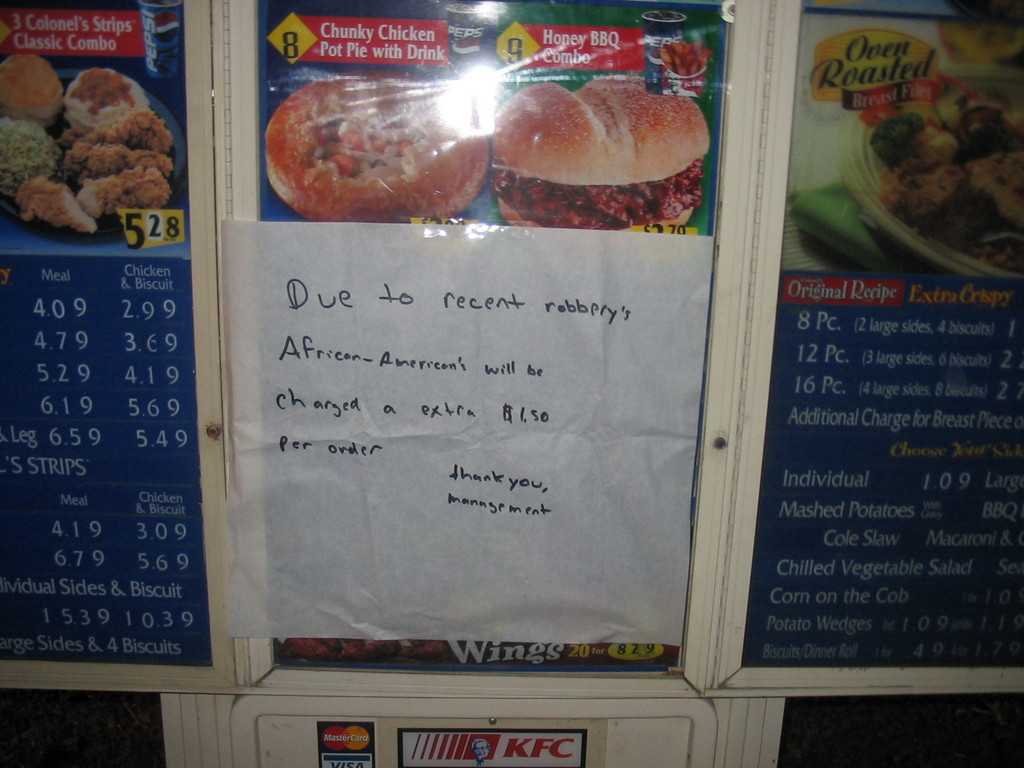 3 Colonel's Strips
Classic Combo
PEPSI
5 2 8
Meal
Chicken & Biscuit
4.0 9 2.9 9
4.7 9 3.6 9
5.2 9 4.1 9
6.1 9 5.6 9
& Leg 6.5 9 5.4 9
L'S STRIPS
Meal
Chicken & Biscuit
4.1 9 3.0 9
6.7 9 5.6 9
dividual Sides & Biscuit
1 5.3 9 1 0.3 9
arge Sides & 4 Biscuits
8 Chunky Chicken
Pot Pie with Drink
PEPS
9 Honey BBQ
Combo
PEPS
$2.79
Due to recent robbery's
African-American's will be
charged a extra $1.50
per order
thank you,
management
Wings 20 for 8 2 9
MasterCard
VISA
KFC
Oven
Roasted
Breast Filet
Original Recipe Extra Crispy
8 Pc. (2 large sides, 4 biscuits) 1
12 Pc. (3 large sides, 6 biscuits) 2
16 Pc. (4 large sides, 8 biscuits) 2
Additional Charge for Breast Piece o
Choose Your Side
Individual 1.0 9 Large
Mashed Potatoes With Gravy BBQ
Cole Slaw Macaroni & C
Chilled Vegetable Salad Sea
Corn on the Cob 1 for 1.0 9
Potato Wedges 1.0 9 1.1 9
Biscuits/Dinner Roll 1 for .4 9 4 for 1.7 9